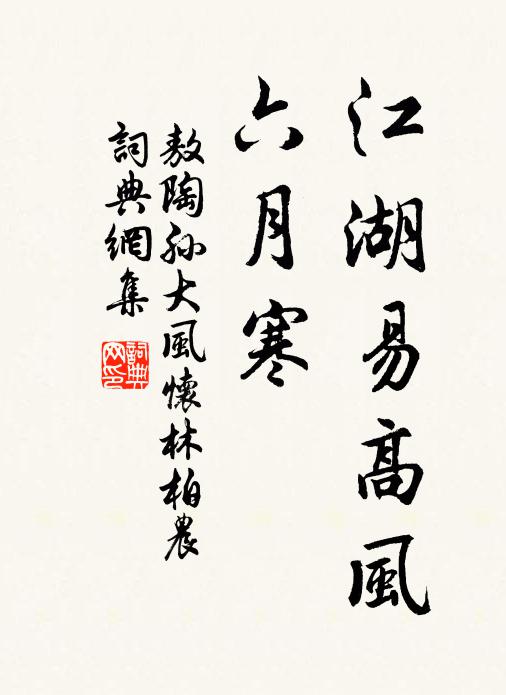 江湖易高風
六月寒
敖陶孫大風懷林柏農
詞典網集
詞典網印